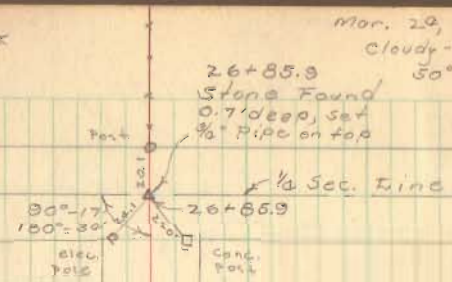 Mar. 29,
Cloudy -
50°
26+85.9
Stone Found
0.7' deep, set
3/4" Pipe on top
Post
20.1
1/4 Sec. Line
90°-17'
26+85.9
180°-30'
elec.
Pole
Conc.
Post